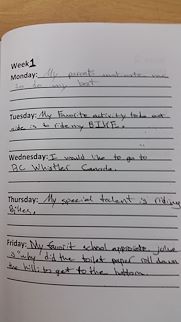 Week 1
Monday: My parents motivate me
to do my best
Tuesday: My Favorite activity to do out
side is to ride my BIKE.
Wednesday: I would like to go to
BC Whistler Canada.
Thursday: My special talent is riding
Bikes,
Friday: My favorit school approiate joke
is "why did the toilet paper roll down
the hill: to get to the bottom.